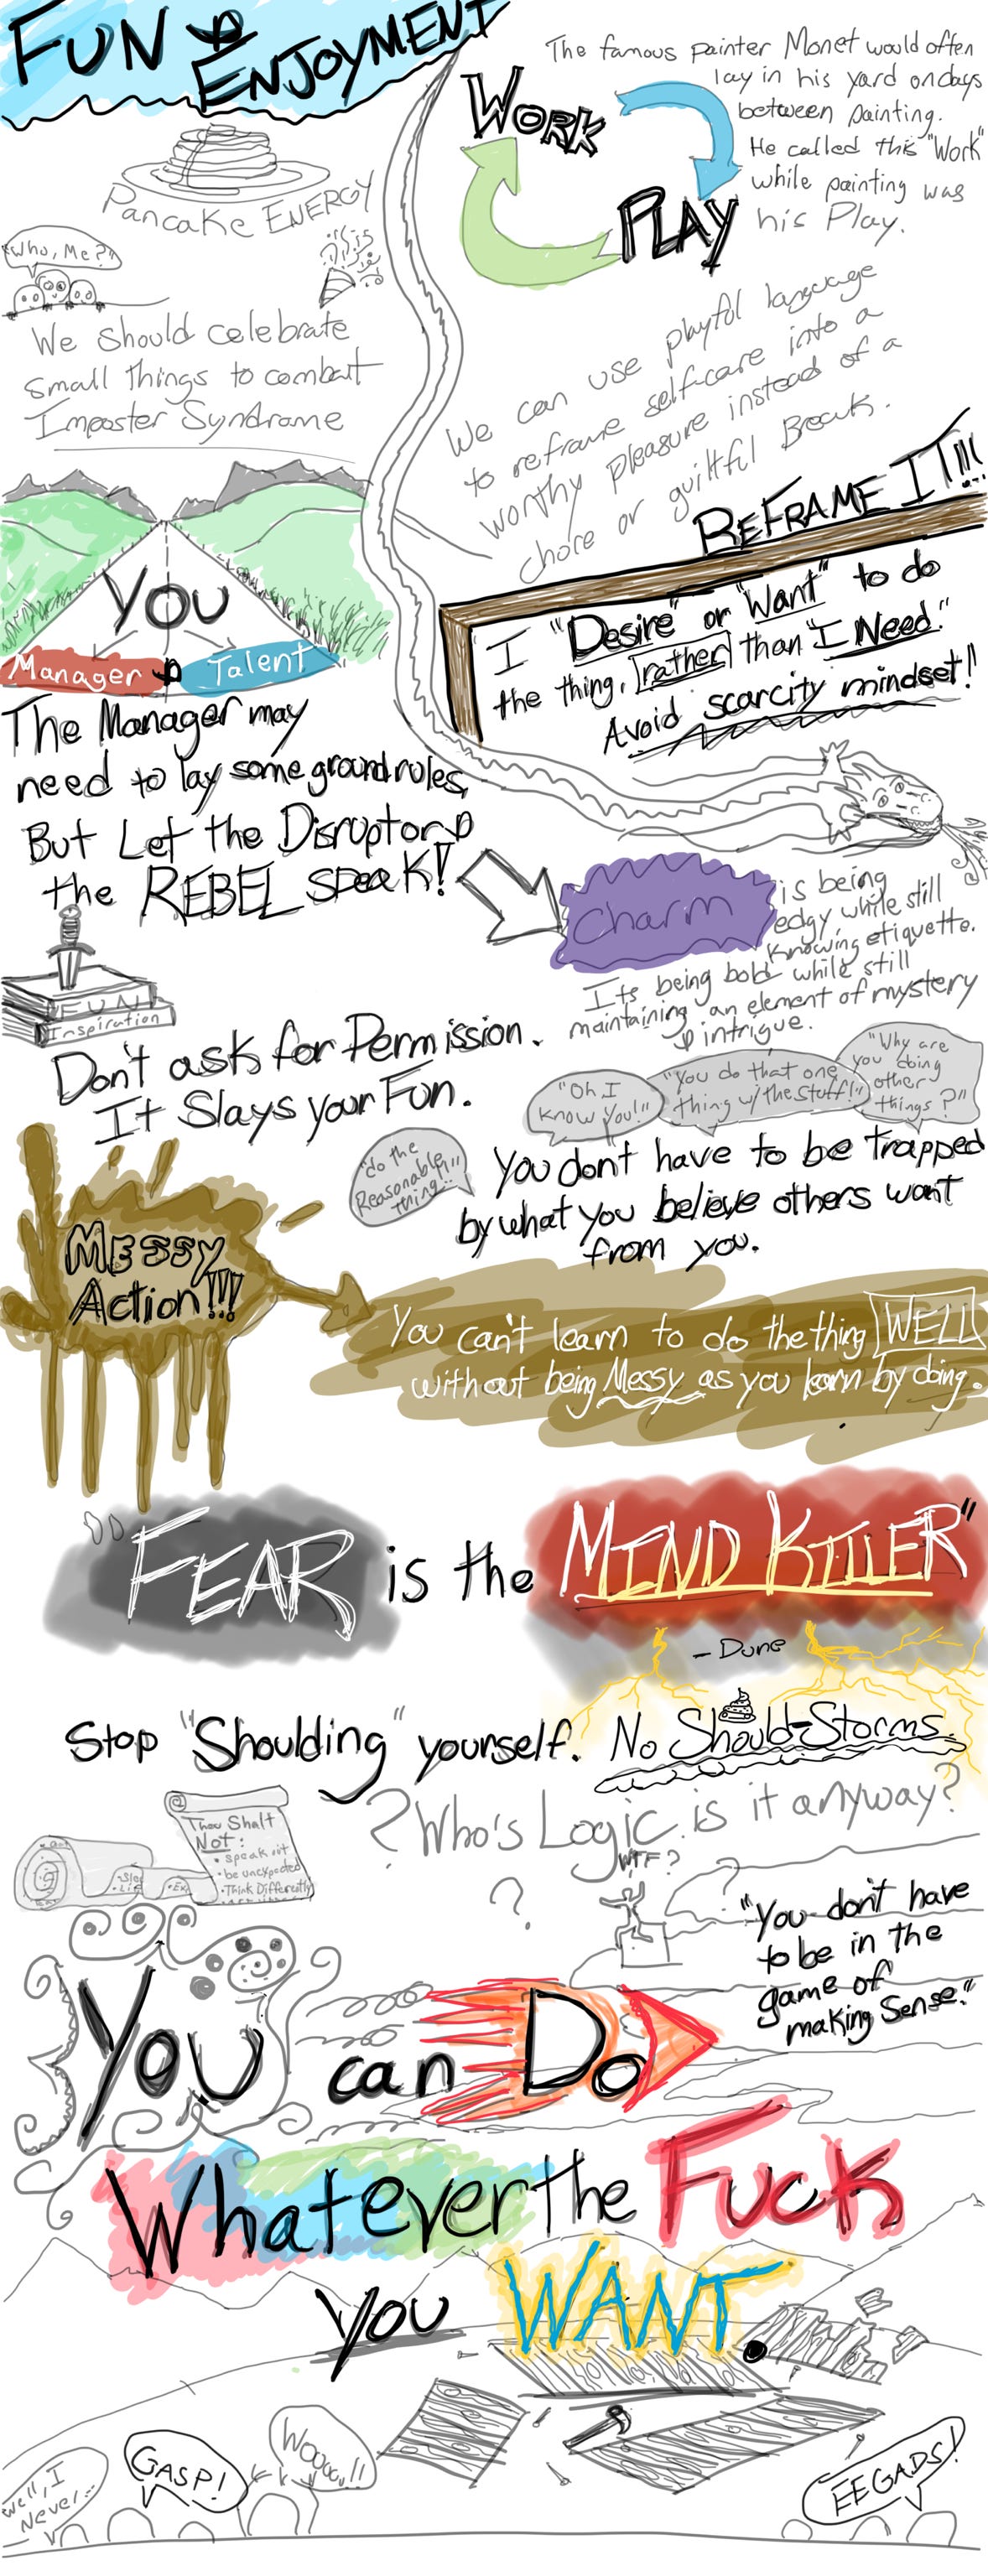 FUN &
ENJOYMENT
Pancake ENERGY
"Who, Me?"
We should celebrate
small things to combat
Imposter Syndrome
WORK
PLAY
The famous painter Monet would often
lay in his yard on days
between painting.
He called this "Work"
while painting was
his Play.
We can use playful language
to reframe self-care into a
worthy pleasure instead of a
chore or guiltful Break.
REFRAME IT!!!
I "Desire" or "Want" to do
the thing, rather than "I Need."
Avoid scarcity mindset!
YOU
Manager & Talent
The Manager may
need to lay some ground rules,
But Let the Disruptor &
the REBEL speak!
Charm
is being
edgy while still
knowing etiquette.
Its being bold while still
maintaining an element of mystery
& intrigue.
FUN!
Inspiration
Don't ask for Permission.
It Slays your Fun.
"Oh I
know You!"
"You do that one
thing w/ the stuff!"
"Why are
you doing
other
things?"
"do the
Reasonable
thing..."
You dont have to be trapped
by what you believe others want
from you.
MESSY
Action!!!
You can't learn to do the thing WELL
without being Messy as you learn by doing.
"FEAR is the MIND KILLER"
- Dune
Stop "Shoulding" yourself. No Should-Storms.
? Who's Logic is it anyway?
Thou Shalt
Not:
• speak out
• be unexpected
• Think Differently
WTF?
?
?
"You don't have
to be in the
game of
making Sense."
You can Do
Whatever the Fuck
you WANT.
Well, I
Never...
GASP!
Woooo!!
EEGADS!